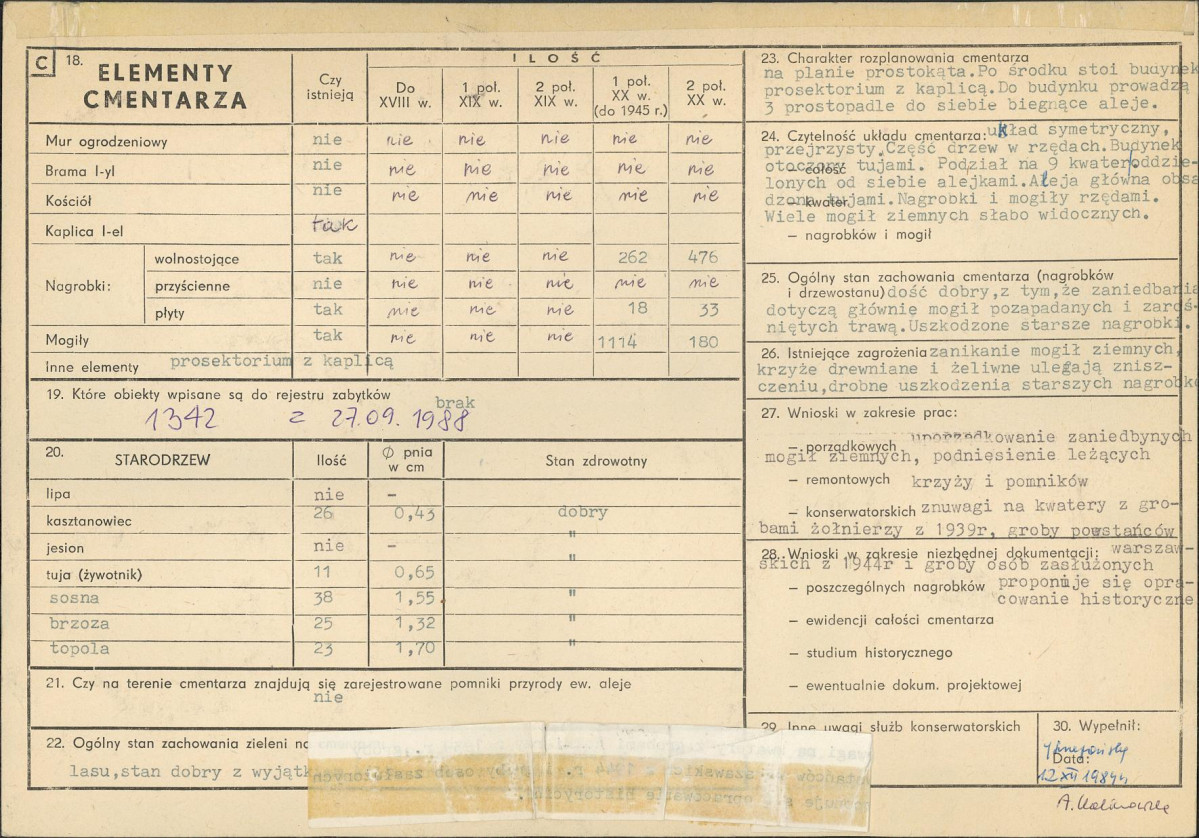 C 18. ELEMENTY CMENTARZA
Czy istnieją
ILOŚĆ
Do XVIII w.
1 poł. XIX w.
2 poł. XIX w.
1 poł. XX w. (do 1945 r.)
2 poł. XX w.
Mur ogrodzeniowy nie nie nie nie nie nie
Brama I-yl nie nie nie nie nie nie
Kościół nie nie nie nie nie nie
Kaplica I-el tak
Nagrobki:
wolnostojące tak nie nie nie 262 476
przyścienne nie nie nie nie nie nie
płyty tak nie nie nie 18 33
Mogiły tak nie nie nie 1114 180
Inne elementy prosektorium z kaplicą
19. Które obiekty wpisane są do rejestru zabytków brak
1342 z 27.09.1988
20. STARODRZEW Ilość Ø pnia w cm Stan zdrowotny
lipa nie –
kasztanowiec 26 0,43 dobry
jesion nie – "
tuja (żywotnik) 11 0,65 "
sosna 38 1,55 "
brzoza 25 1,32 "
topola 23 1,70 "
21. Czy na terenie cmentarza znajdują się zarejestrowane pomniki przyrody ew. aleje
nie
22. Ogólny stan zachowania zieleni
lasu,stan dobry z
23. Charakter rozplanowania cmentarza
na planie prostokąta.Po środku stoi budynek
prosektorium z kaplicą.Do budynku prowadzą
3 prostopadle do siebie biegnące aleje.
24. Czytelność układu cmentarza: układ symetryczny,
przejrzysty.Część drzew w rzędach.Budynek
otoczony tujami. Podział na 9 kwater oddzie-
– całość
lonych od siebie alejkami.Aleja główna obsa
dzona tujami.Nagrobki i mogiły rzędami.
– kwater
Wiele mogił ziemnych słabo widocznych.
– nagrobków i mogił
25. Ogólny stan zachowania cmentarza (nagrobków
i drzewostanu) dość dobry,z tym,że zaniedbania
dotyczą głównię mogił pozapadanych i zaroś-
niętych trawą.Uszkodzone starsze nagrobki.
26. Istniejące zagrożenia zanikanie mogił ziemnych,
krzyże drewniane i żeliwne ulegają znisz-
czeniu,drobne uszkodzenia starszych nagrobkó
27. Wnioski w zakresie prac:
– porządkowych uporządkowanie zaniedbynych
mogił ziemnych, podniesienie leżących
– remontowych krzyży i pomników
– konserwatorskich znuwagi na kwatery z gro-
bami żołnierzy z 1939r, groby powstańców
28. Wnioski w zakresie niezbędnej dokumentacji: warszaw-
skich z 1944r i groby osób zasłużonych
– poszczególnych nagrobków proponuje się opra-
cowanie historyczne
– ewidencji całości cmentarza
– studium historycznego
– ewentualnie dokum. projektowej
29. Inne uwagi służb konserwatorskich
30. Wypełnił:
Data:
12 XII 1984r